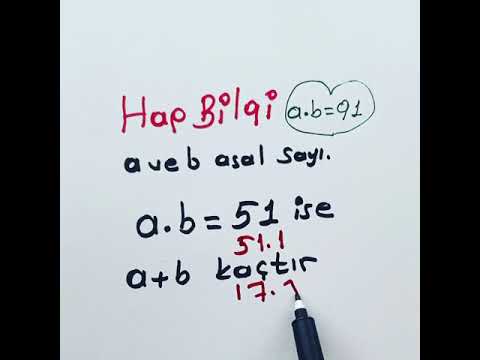 Hap Bilgi a.b=91
a ve b asal sayı.
a.b=51 ise
51.1
a+b kaçtır
17.